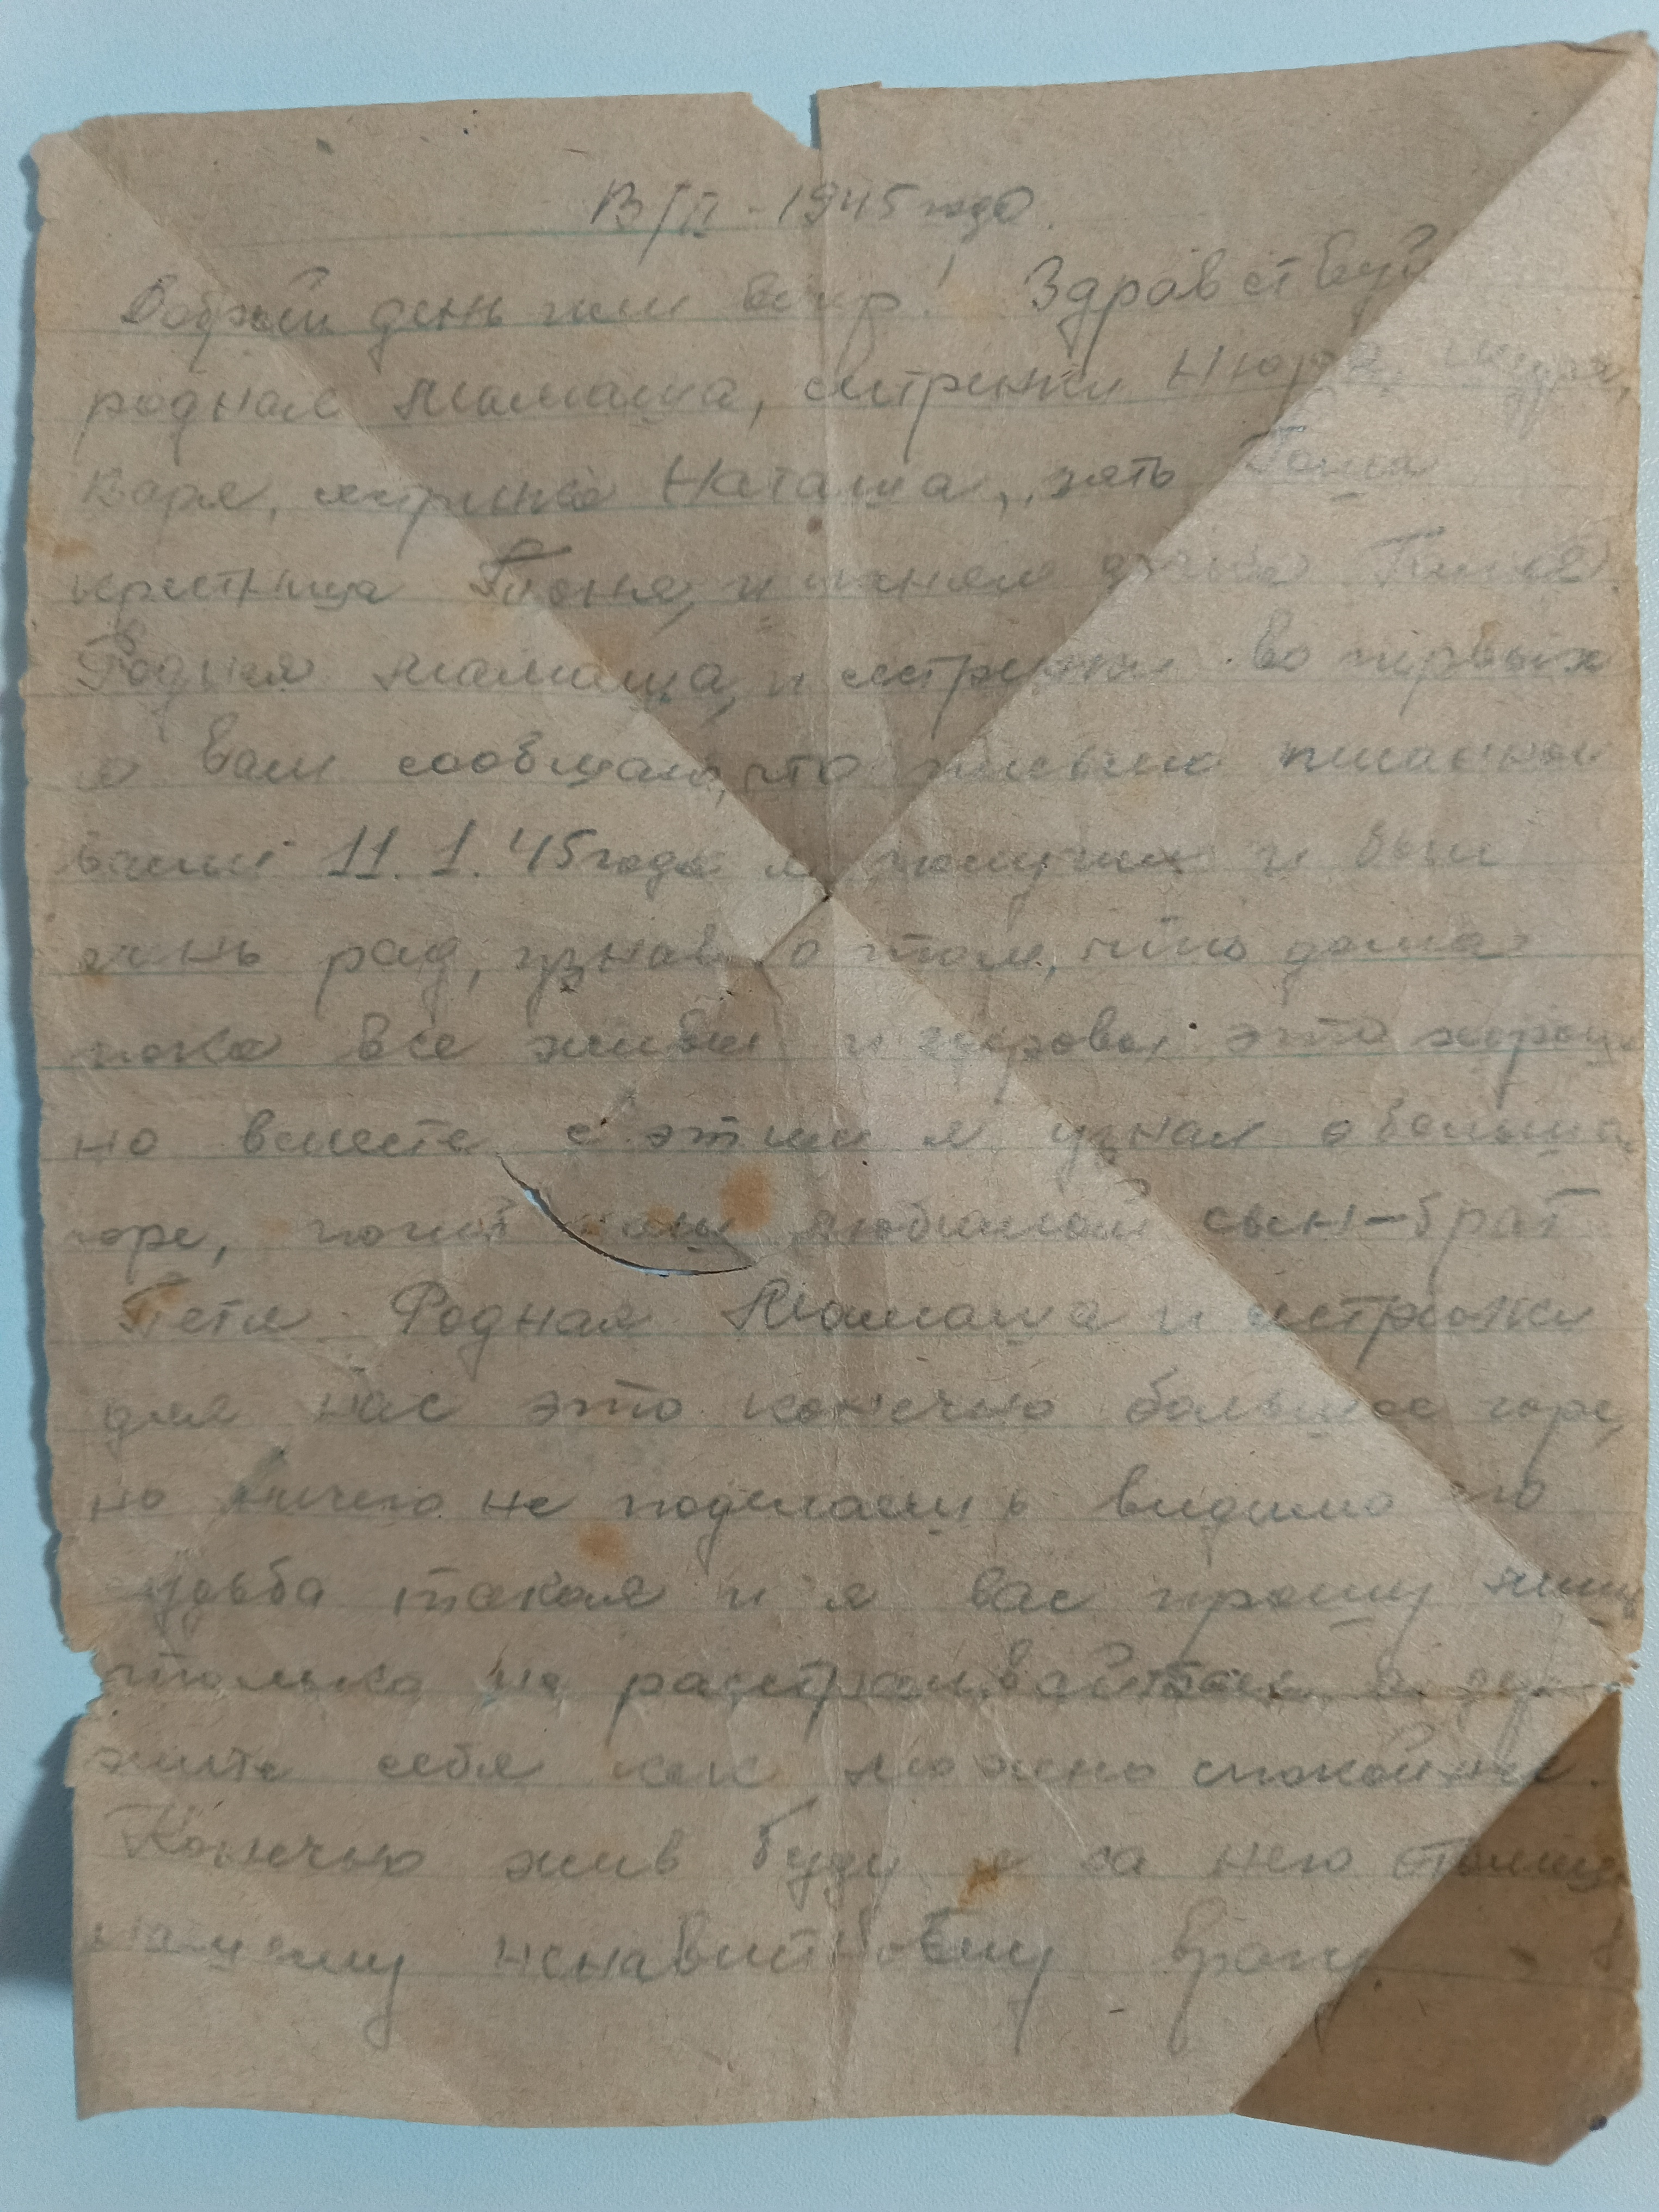 13/II - 1945 года.
Добрый день или вечер! Здравствуй
родная мамаша, сестренки Нюра, Шура,
Варя, сестренка Наташа, зять Гоша
крестница Тоня, и
Родная мамаша, и сестренки во первых
я вам сообщаю, что письмо писанное
вами 11.1.45 года я получил и был
очень рад, узнав о том, что дома
пока все живы и здоровы это хорошо
но вместе с этим я узнал о большом
горе, погиб наш любимый сын-брат
Петя. Родная Мамаша и сестренки
для нас это конечно большое горе,
но ничего не поделаешь видимо его
судьба такая и я вас прошу
только не расстраивайтесь, а дер-
жите себя как можно спокойнее.
Конечно жив буду я за него отомщу
нашему ненавистному врагу.